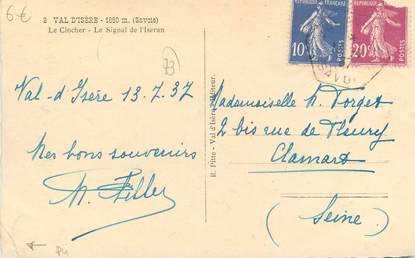 6€
2 VAL D'ISÈRE - 1850 m. (Savoie)
Le Clocher - Le Signal de l'Iseran
73
Val-d'Isère 13.7.37
Mes bons souvenirs
R. Pitte - Val d'Isère, Editeur.
FRANÇAISE
10c
POSTES
20c
POSTES
Mademoiselle
2 bis rue de Fleury
Clamart
(Seine)